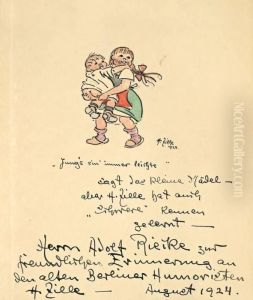 H. Zille
"Jung's sin' immer leichte"
sagt das kleine Mädel —
aber H. Zille hat auch
"Schwere" kennen
gelernt —
Herrn Adolf Rieike zur
freundlichen Erinnerung an
den alten Berliner Humoristen
H. Zille — August 1924.
NiceArtGallery.com